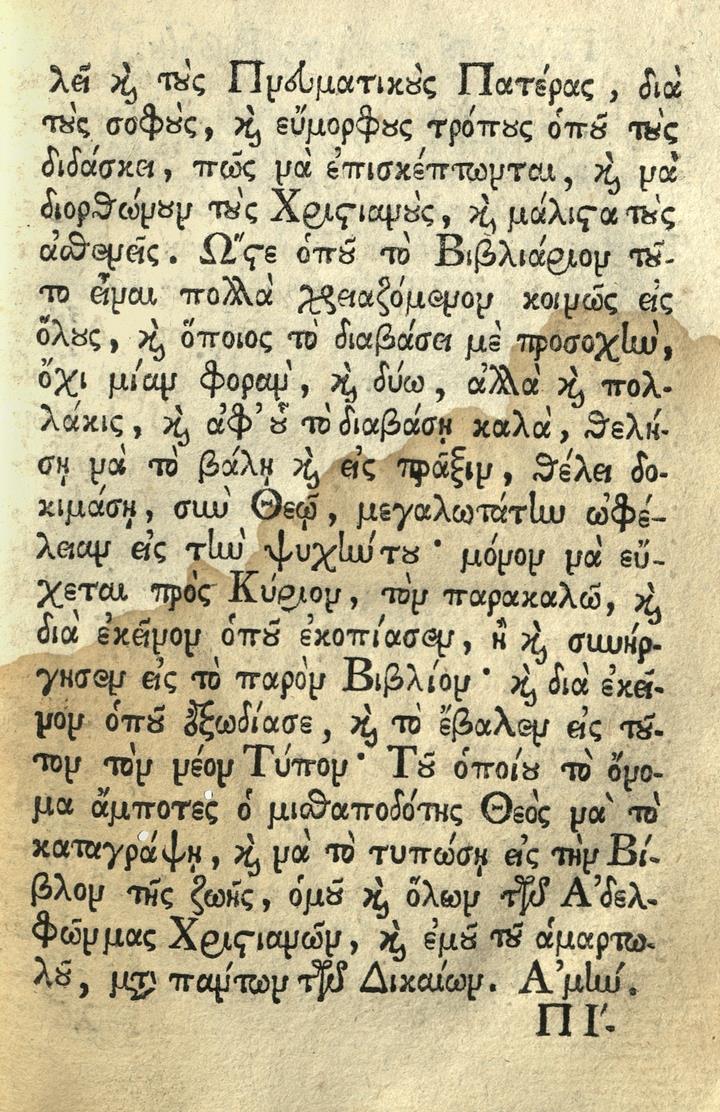 λεῖ καὶ τοὺς Πνευματικοὺς Πατέρας, διὰ
τοὺς σοφοὺς, καὶ εὔμορφους τρόπους ὁποῦ τοὺς
διδάσκει, πῶς νὰ ἐπισκέπτωνται, καὶ νὰ
διορθώνουν τοὺς Χριστιανοὺς, καὶ μάλιστα τοὺς
ἀσθενεῖς. Ὥστε ὁποῦ τὸ Βιβλιάριον τοῦ-
το εἶναι πολλὰ χρειαζόμενον κοινῶς εἰς
ὅλους, καὶ ὅποιος τὸ διαβάσει μὲ προσοχὴν,
ὄχι μίαν φορὰν, καὶ δύω, ἀλλὰ καὶ πολ-
λάκις, καὶ ἀφ' οὗ τὸ διαβάσῃ καλὰ, θελή-
σῃ νὰ τὸ βάλῃ καὶ εἰς πρᾶξιν, θέλει δο-
κιμάσῃ, σὺν Θεῷ, μεγαλωτάτην ὠφέ-
λειαν εἰς τὴν ψυχήν του· μόνον νὰ εὔ-
χεται πρὸς Κύριον, τὸν παρακαλῶ, καὶ
διὰ ἐκεῖνον ὁποῦ ἐκοπίασεν, ἢ καὶ συνήρ-
γησεν εἰς τὸ παρὸν Βιβλίον· καὶ διὰ ἐκεῖ-
νον ὁποῦ ἐξωδίασε, καὶ τὸ ἔβαλεν εἰς τοῦ-
τον τὸν νέον Τύπον· Τοῦ ὁποίου τὸ ὄνο-
μα ἄμποτες ὁ μισθαποδότης Θεὸς νὰ τὸ
καταγράψῃ, καὶ νὰ τὸ τυπώσῃ εἰς τὴν Βί-
βλον τῆς ζωῆς, ὁμοῦ καὶ ὅλων τῶν Ἀδελ-
φῶν μας Χριστιανῶν, καὶ ἐμοῦ τοῦ ἁμαρτω-
λοῦ, μετὰ πάντων τῶν Δικαίων. Ἀμήν.
ΠΙ´-